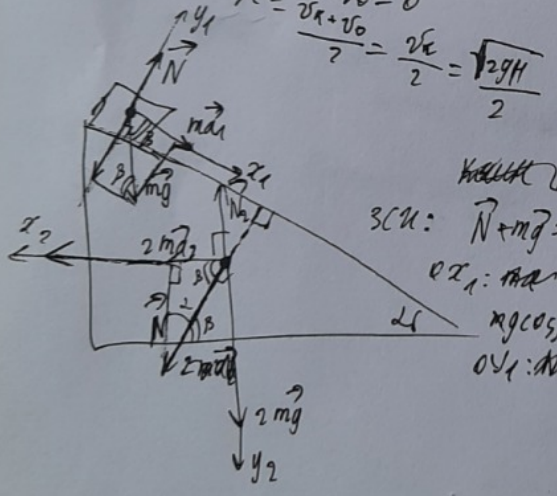 (v_к+v_0)/2 = v_к/2 = √(2gH)/2
y₁
N⃗
ma⃗₁
β
β
mg⃗
x₁
N₂
x₂
2ma⃗₂
β
α
N⃗
β
α
2mg⃗
y₂
ЗСИ: N⃗+mg⃗
OX₁: ma
mgcos
OY₁: N